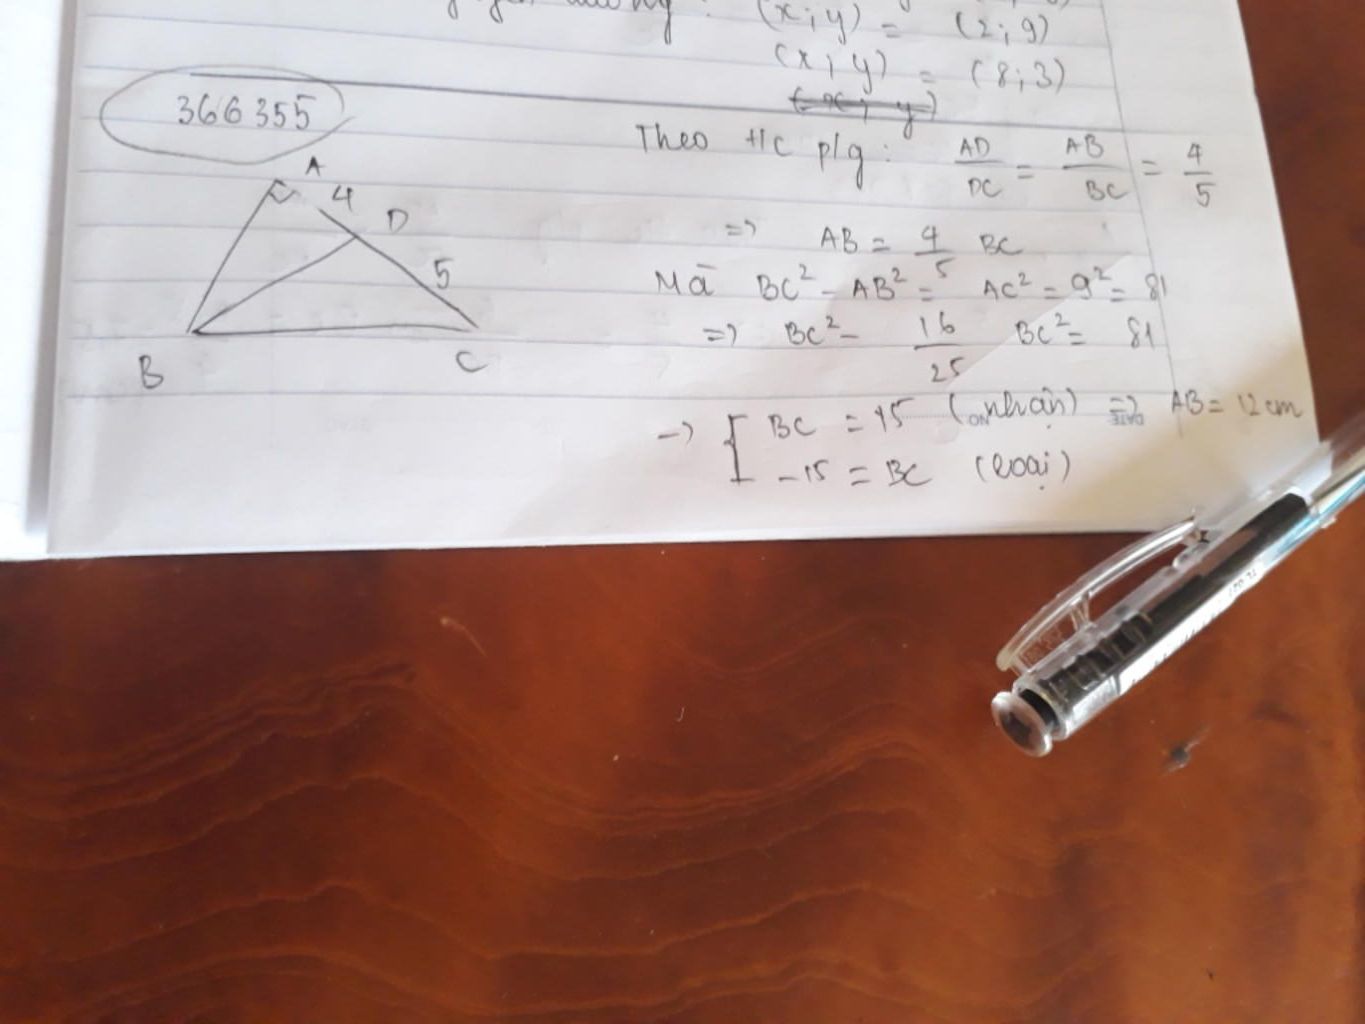 (x; y) = (2; 9)
(x; y) = (8; 3)
366355
A
4
D
5
B
C
Theo t/c p/g: AD/DC = AB/BC = 4/5
=> AB = 4/5 BC
Mà BC² - AB² = AC² = 9² = 81
=> BC² - 16/25 BC² = 81
-> [ BC = 15 (nhận) => AB = 12 cm
-15 = BC (loại)
NO
DATE